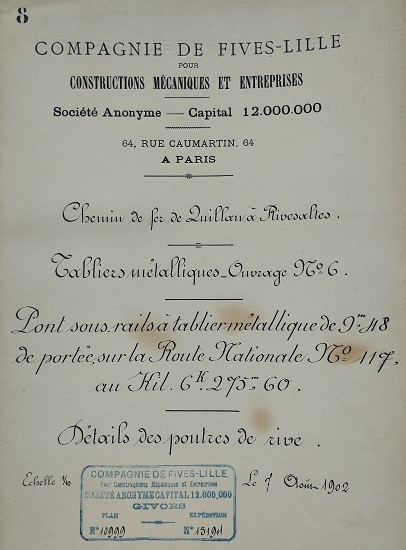 8
COMPAGNIE DE FIVES-LILLE
POUR
CONSTRUCTIONS MÉCANIQUES ET ENTREPRISES
Société Anonyme — Capital 12.000.000
64, RUE CAUMARTIN, 64
A PARIS
Chemin de fer de Quillan à Rivesaltes.
Tabliers métalliques_Ouvrage No 6.
Pont sous rails à tablier métallique de 9m48
de portée, sur la Route Nationale No 117,
au Kil. 6K.275m60.
Détails des poutres de rive.
Echelle
Le 7 Août 1902
COMPAGNIE DE FIVES-LILLE
Pour Constructions Mécaniques et Entreprises
SOCIÉTÉ ANONYME CAPITAL 12.000,000
GIVORS
PLAN EXPÉDITION
No 10999 No 15194